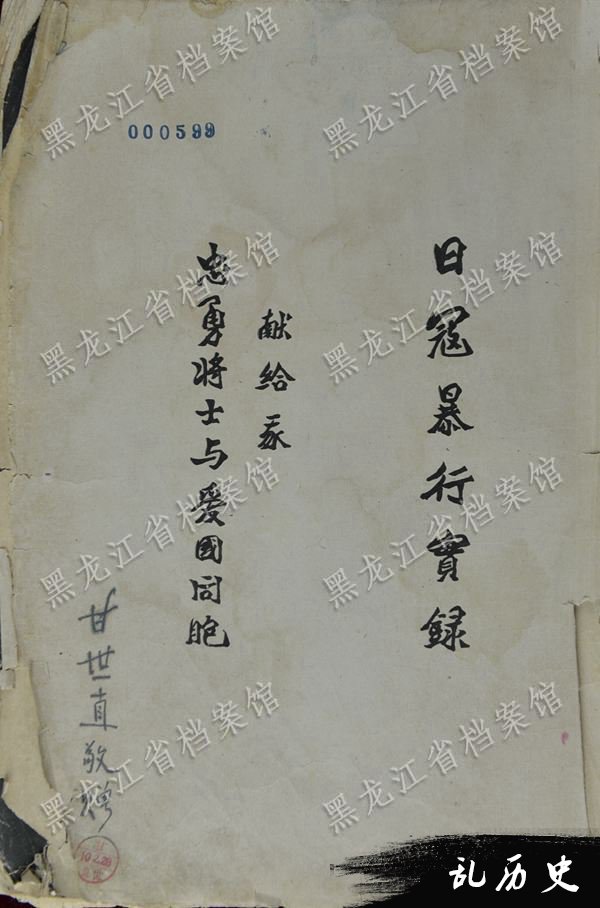 000599
日寇暴行實録
献给我
忠勇将士与爱國同胞
甘世直敬赠
黑龙江省档案馆
黑龙江省档案馆
黑龙江省档案馆
黑龙江省档案馆
黑龙江省档案馆
黑龙江省档案馆
黑龙江省档案馆
黑龙江省档案馆
乱历史